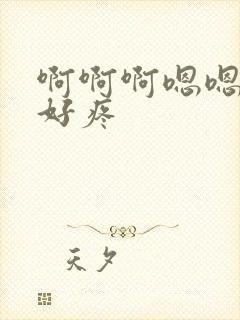 啊啊啊嗯嗯
好疼
天夕